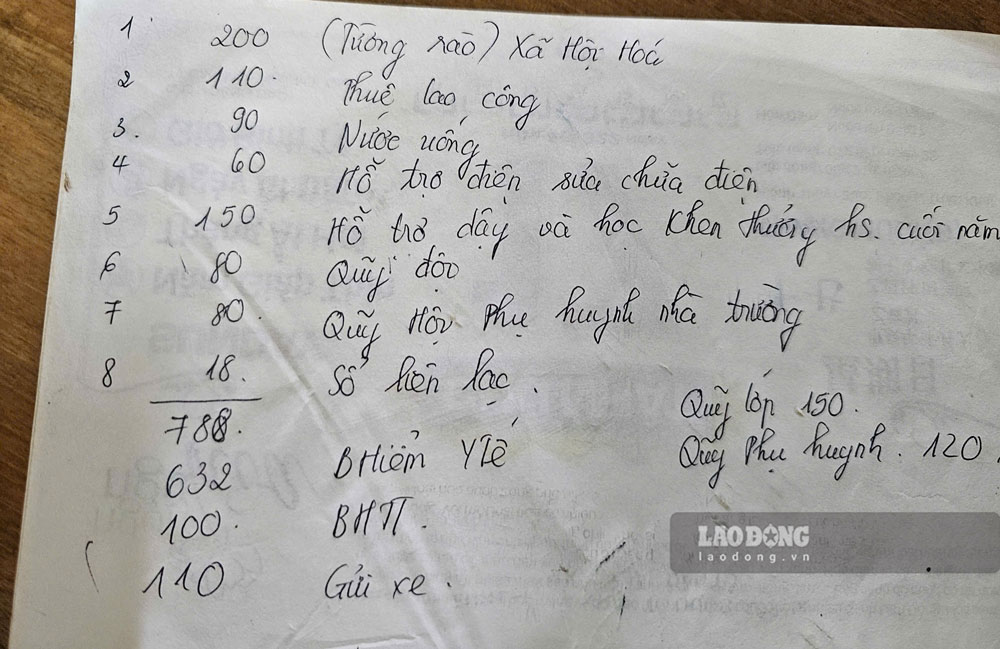 1 200 (Tường rào) Xã Hội Hoá
2 110. Thuê lao công
3. 90 Nước uống
4 60 Hỗ trợ điện sửa chữa điện
5 150. Hỗ trợ dậy và học Khen thưởng hs. cuối năm
6 80 Quỹ đội
7 80. Quỹ Hội Phụ huynh nhà trường
8 18. Sổ liên lạc.
788.
Quỹ lớp 150.
632 BHiểm Y Tế
Quỹ Phụ huynh. 120.
100. BHTT.
110 Gửi xe.
LAO ĐỘNG
laodong.vn